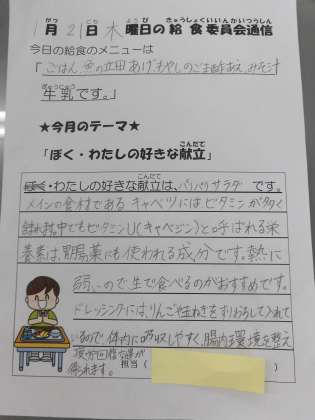 1月21日木曜日の給食委員会通信
今日の給食のメニューは
「ごはん、魚の立田あげ、もやしのごま酢あえ、みそ汁
牛乳です。」
★今月のテーマ★
「ぼく・わたしの好きな献立」
ぼく・わたしの好きな献立は、パリパリサラダ です。
メインの食材であるキャベツにはビタミンが多く
含まれ、中でもビタミンU(キャベジン)と呼ばれる栄
養素は、胃腸薬にも使われる成分です。熱に
弱いので生で食べるのがおすすめです。
ドレッシングには、りんごや玉ねぎをすりおろして入れて
いるので体内に吸収しやすく、腸内環境を整え
疲労回復効果が
得られます。
担当( )